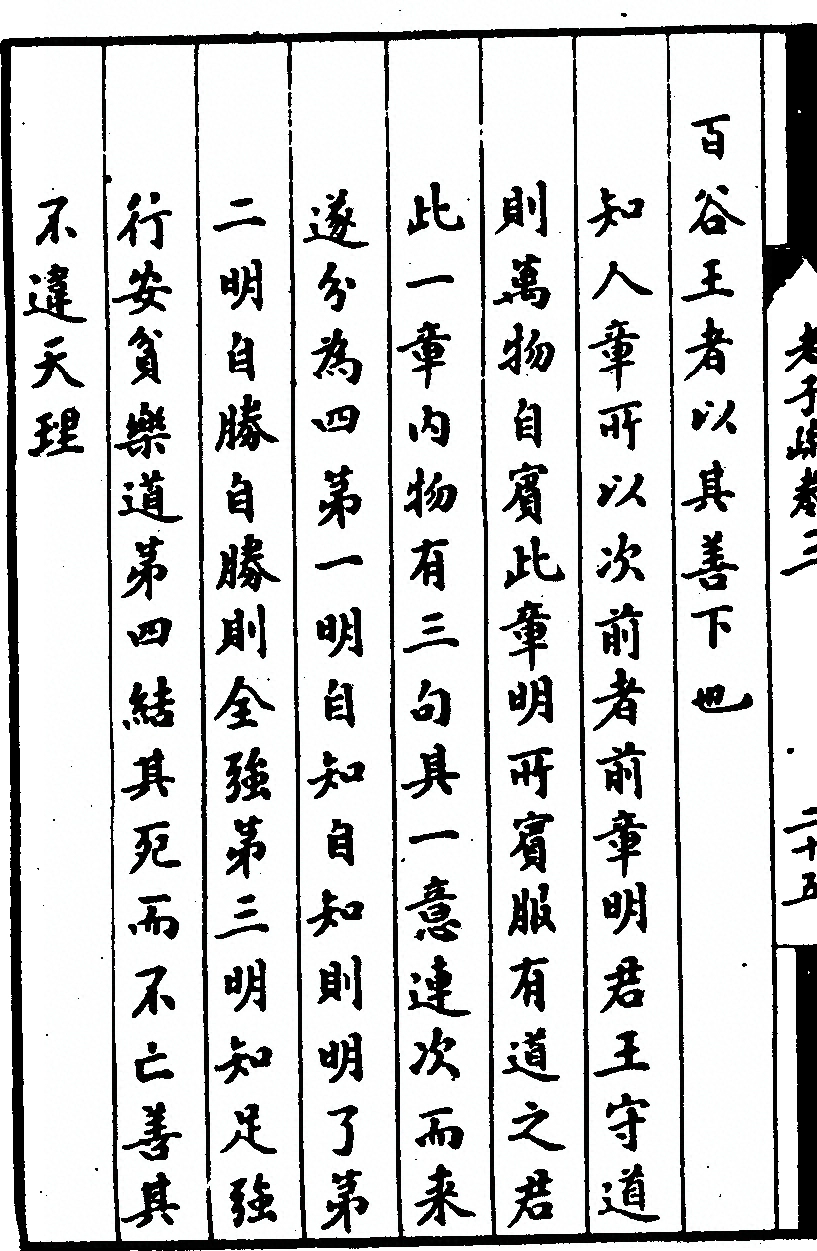 百谷王者以其善下也
知人章所以次前者前章明君王守道
則萬物自賓此章明所賓服有道之君
此一章內物有三句其一意連次而来
遂分為四第一明自知自知則明了第
二明自勝自勝則全強第三明知足強
行安貧樂道第四結其死而不亡善其
不違天理
老子疏卷三
二十五